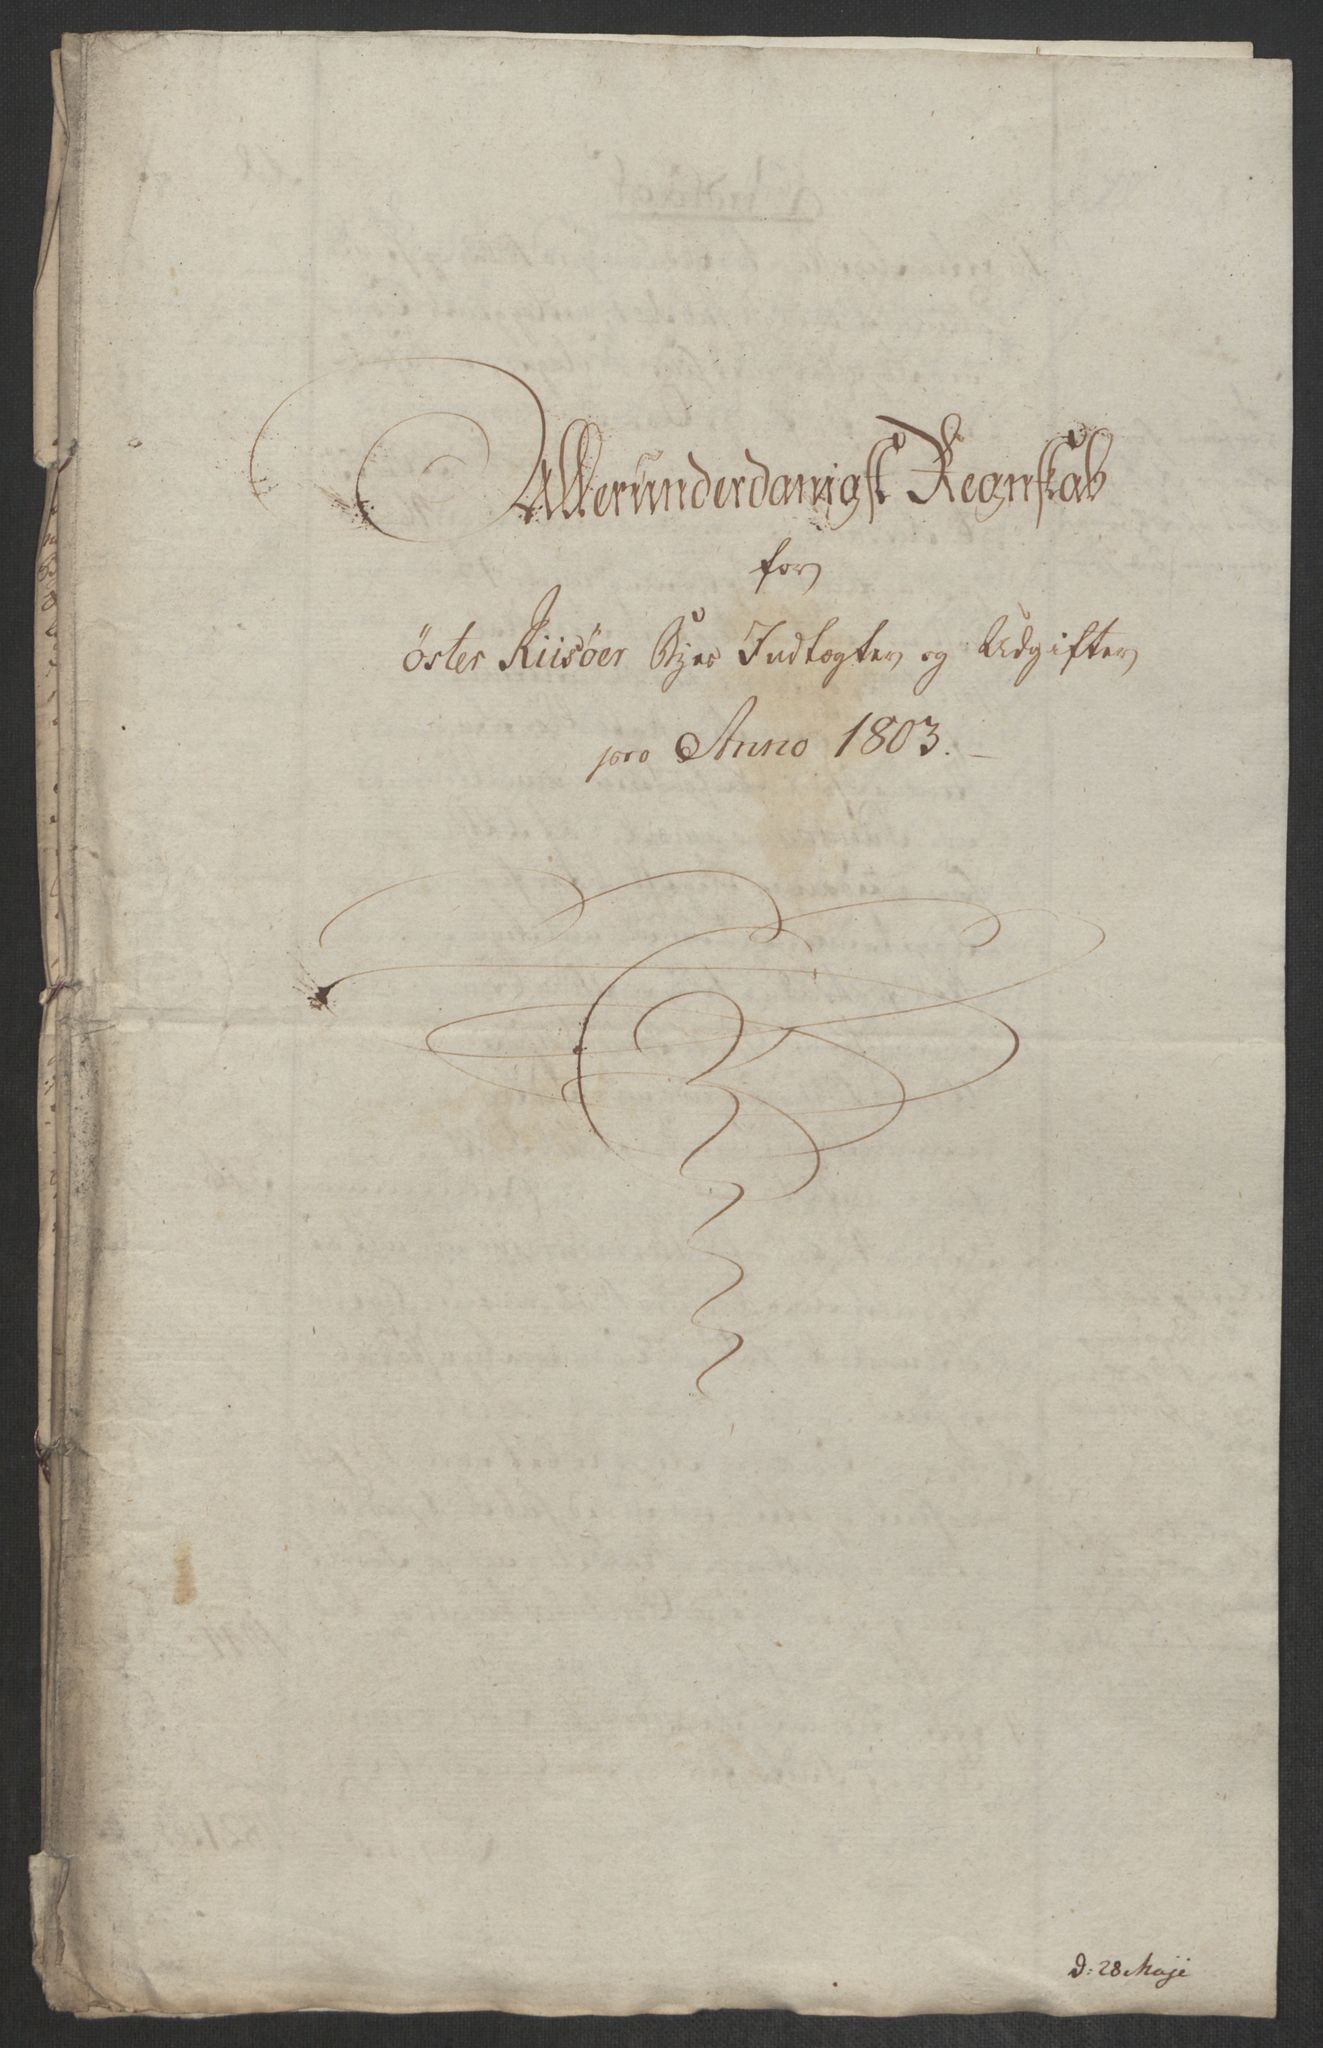 Allerunderdanigst Regnskab
for
öster Riisöer Byes Indtægter og Udgifter
pro Anno 1803.
D: 28 Maji